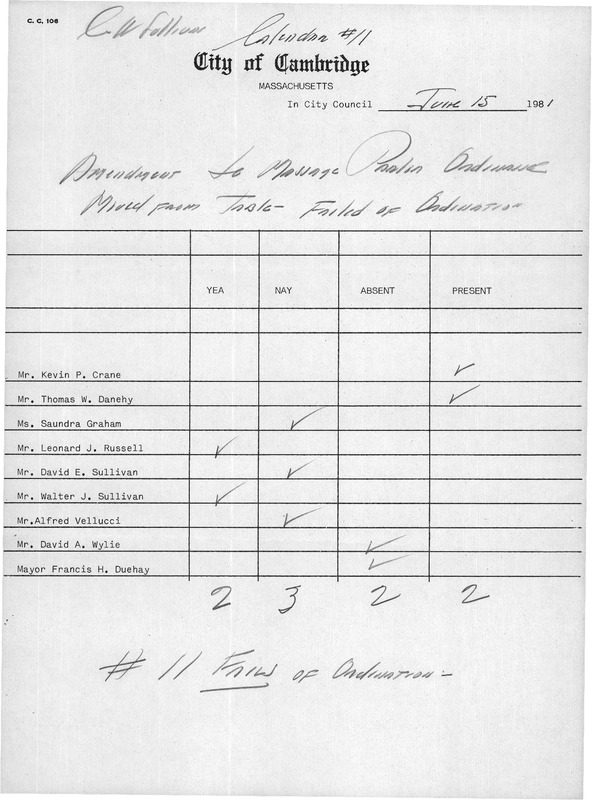 C. C. 106
C W Sullivan Calendar #11
City of Cambridge
MASSACHUSETTS
In City Council June 15 1981
Amendment to Massage Parlor Ordinance
Moved from Table - Failed of Ordination
YEA NAY ABSENT PRESENT
Mr. Kevin P. Crane ✓
Mr. Thomas W. Danehy ✓
Ms. Saundra Graham ✓
Mr. Leonard J. Russell ✓
Mr. David E. Sullivan ✓
Mr. Walter J. Sullivan ✓
Mr.Alfred Vellucci ✓
Mr. David A. Wylie ✓
Mayor Francis H. Duehay ✓
2 3 2 2
# 11 Failed of Ordination -